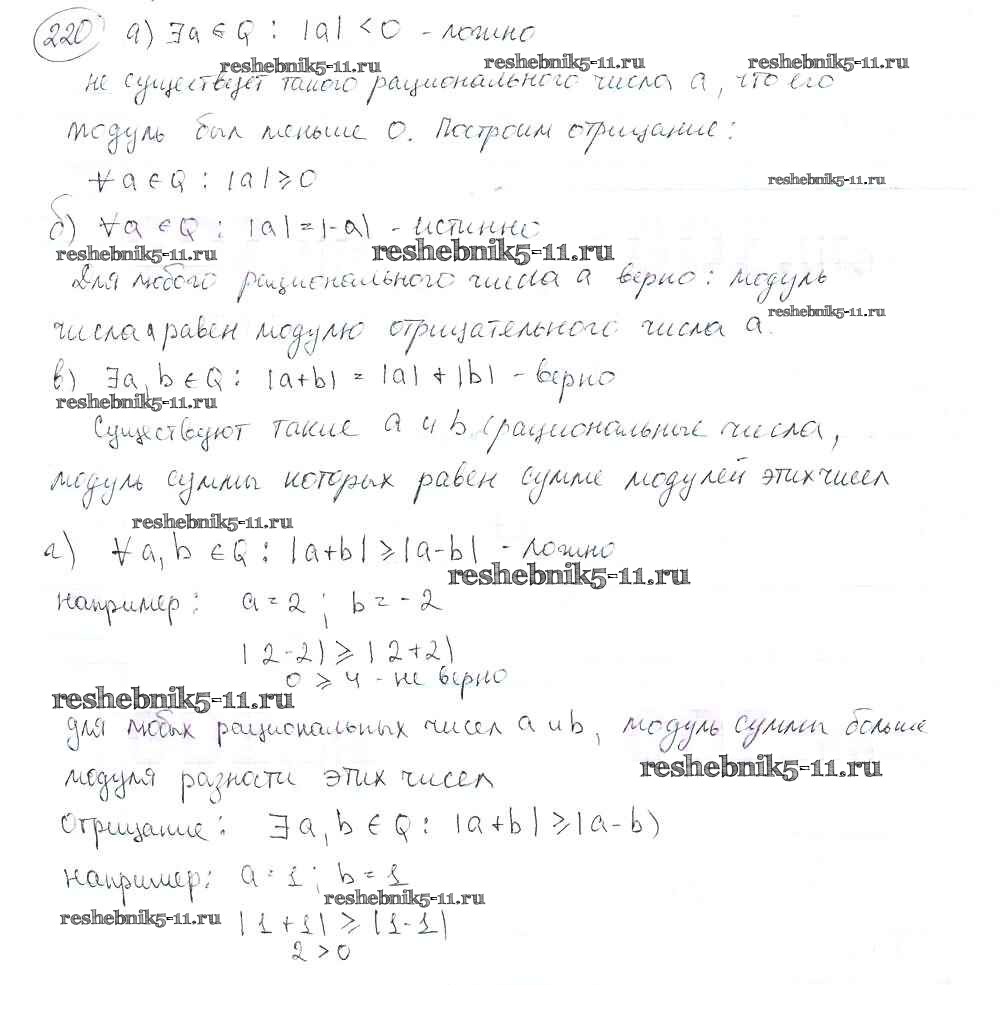 220 а) ∃a∈Q : |a| < 0 - ложно
reshebnik5-11.ru reshebnik5-11.ru reshebnik5-11.ru
не существует такого рационального числа a, что его
модуль был меньше 0. Построим отрицание:
∀a∈Q : |a| ⩾ 0
reshebnik5-11.ru
б) ∀a∈Q : |a|=|-a| - истинно
reshebnik5-11.ru reshebnik5-11.ru
Для любого рационального числа a верно: модуль
reshebnik5-11.ru
числа a равен модулю отрицательного числа a.
в) ∃a, b∈Q : |a+b| = |a| + |b| - верно
reshebnik5-11.ru
Существуют такие a и b рациональные числа,
модуль суммы которых равен сумме модулей этих чисел
reshebnik5-11.ru
г) ∀a, b∈Q : |a+b| ⩾ |a-b| - ложно
reshebnik5-11.ru
например: a = 2 ; b = -2
|2-2| ⩾ |2+2|
0 ⩾ 4 - не верно
reshebnik5-11.ru
для любых рациональных чисел a и b, модуль суммы больше
reshebnik5-11.ru
модуля разности этих чисел
Отрицание: ∃a, b∈Q : |a+b| ⩾ |a-b|
например: a = 1 ; b = 1
reshebnik5-11.ru
reshebnik5-11.ru
|1+1| ⩾ |1-1|
2 > 0